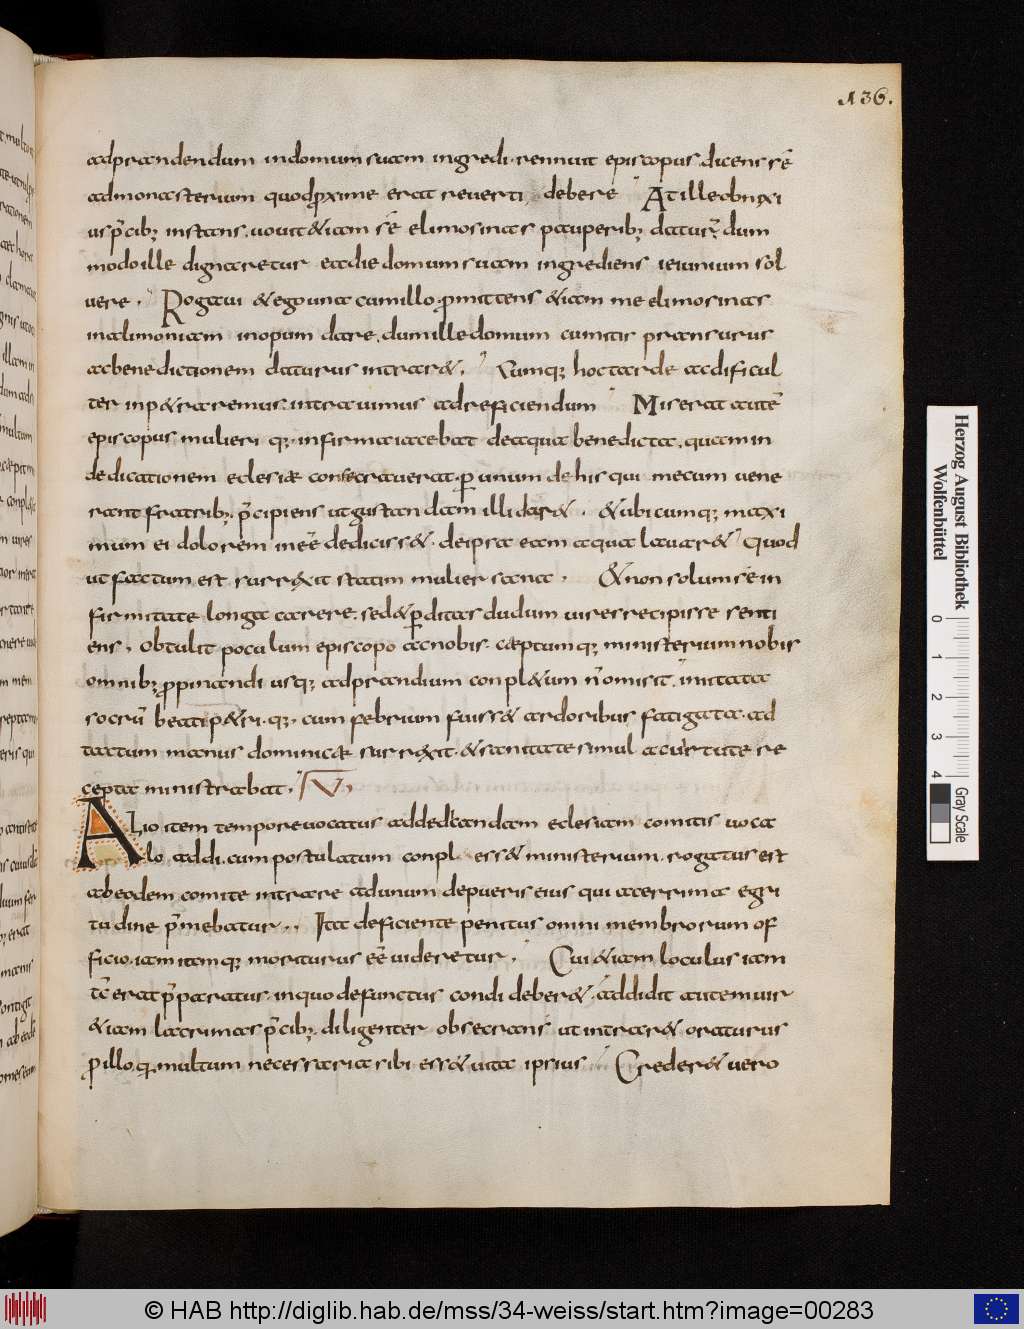 136.
adprandendum indomumsuam ingredi. rennuit episcopus. dicens sē
admonasterium quodꝓxime erat reverti, debere At ille obnixi
usp̄cib; instans. vovit &iam sē elimosinas pauperib; datur̄. dum
modo ille dignaretur eadie domum suam ingrediens ieiunium sol
vere. Rogavi & ego una cum illo. ꝓmittens &iam me elimosinas
inalimoniam inopum dare. dum ille domum comitis pransurus
acbenedictionem daturus intrar&. Cumq; hoc tarde acdificul
ter inp&raremus. intravimus adreficiendum Miserat autē
episcopus mulieri q; infirma iacebat deaqua benedicta. quam in
dedicationem eclesiae consecraverat. ꝑ unum de his qui mecum vene
rant fratrib;. p̄cipiens ut gustandam illi dar&. &ubicumq; maxi
mum ei dolorem inēē dedicisset. deipsa eam aqua lavar& Quod
ut factum est. surr&xit statim mulier sana. & non solum sē in
firmitate longa carere. sed&ꝑditas dudum vires recipisse senti
ens. obtulit poculum episcopo acnobis. caeptumq; ministerium nobis
omnib; ꝓpinandi usq; adprandium conpl&um n̄ omisit. imitata
socrū beati p&ri. q; cum febrium fuiss& ardoribus fatigata. ad
tactum manus dominicae surr&xit. &sanitate simul acvirtute re
cepta ministrabat. V,
Alio item tempore vocatus addedicandam eclesiam comitis voca
lo addi. cum postulatum conpl ess& ministerium. rogatus est
abeodem comite intrare adunum depueris eius qui acerrima egri
tudine p̄mebatur.. Ita deficiente penitus omni membrorum of
ficio. iam iamq; moraturus eē videretur. Cui &iam loculus iam
tc̄ erat p̄paratus. inquo defunctus condi deber&. addidit autem vir
&iam lacrimas p̄cib;. diligenter obsecrans ut intrar& oraturus
ꝓ illo. q; multum necessaria sibi ess& vita ipsius Creder& vero
Herzog August Bibliothek
Wolfenbüttel
0 1 2 3 4
Gray Scale
© HAB http://diglib.hab.de/mss/34-weiss/start.htm?image=00283